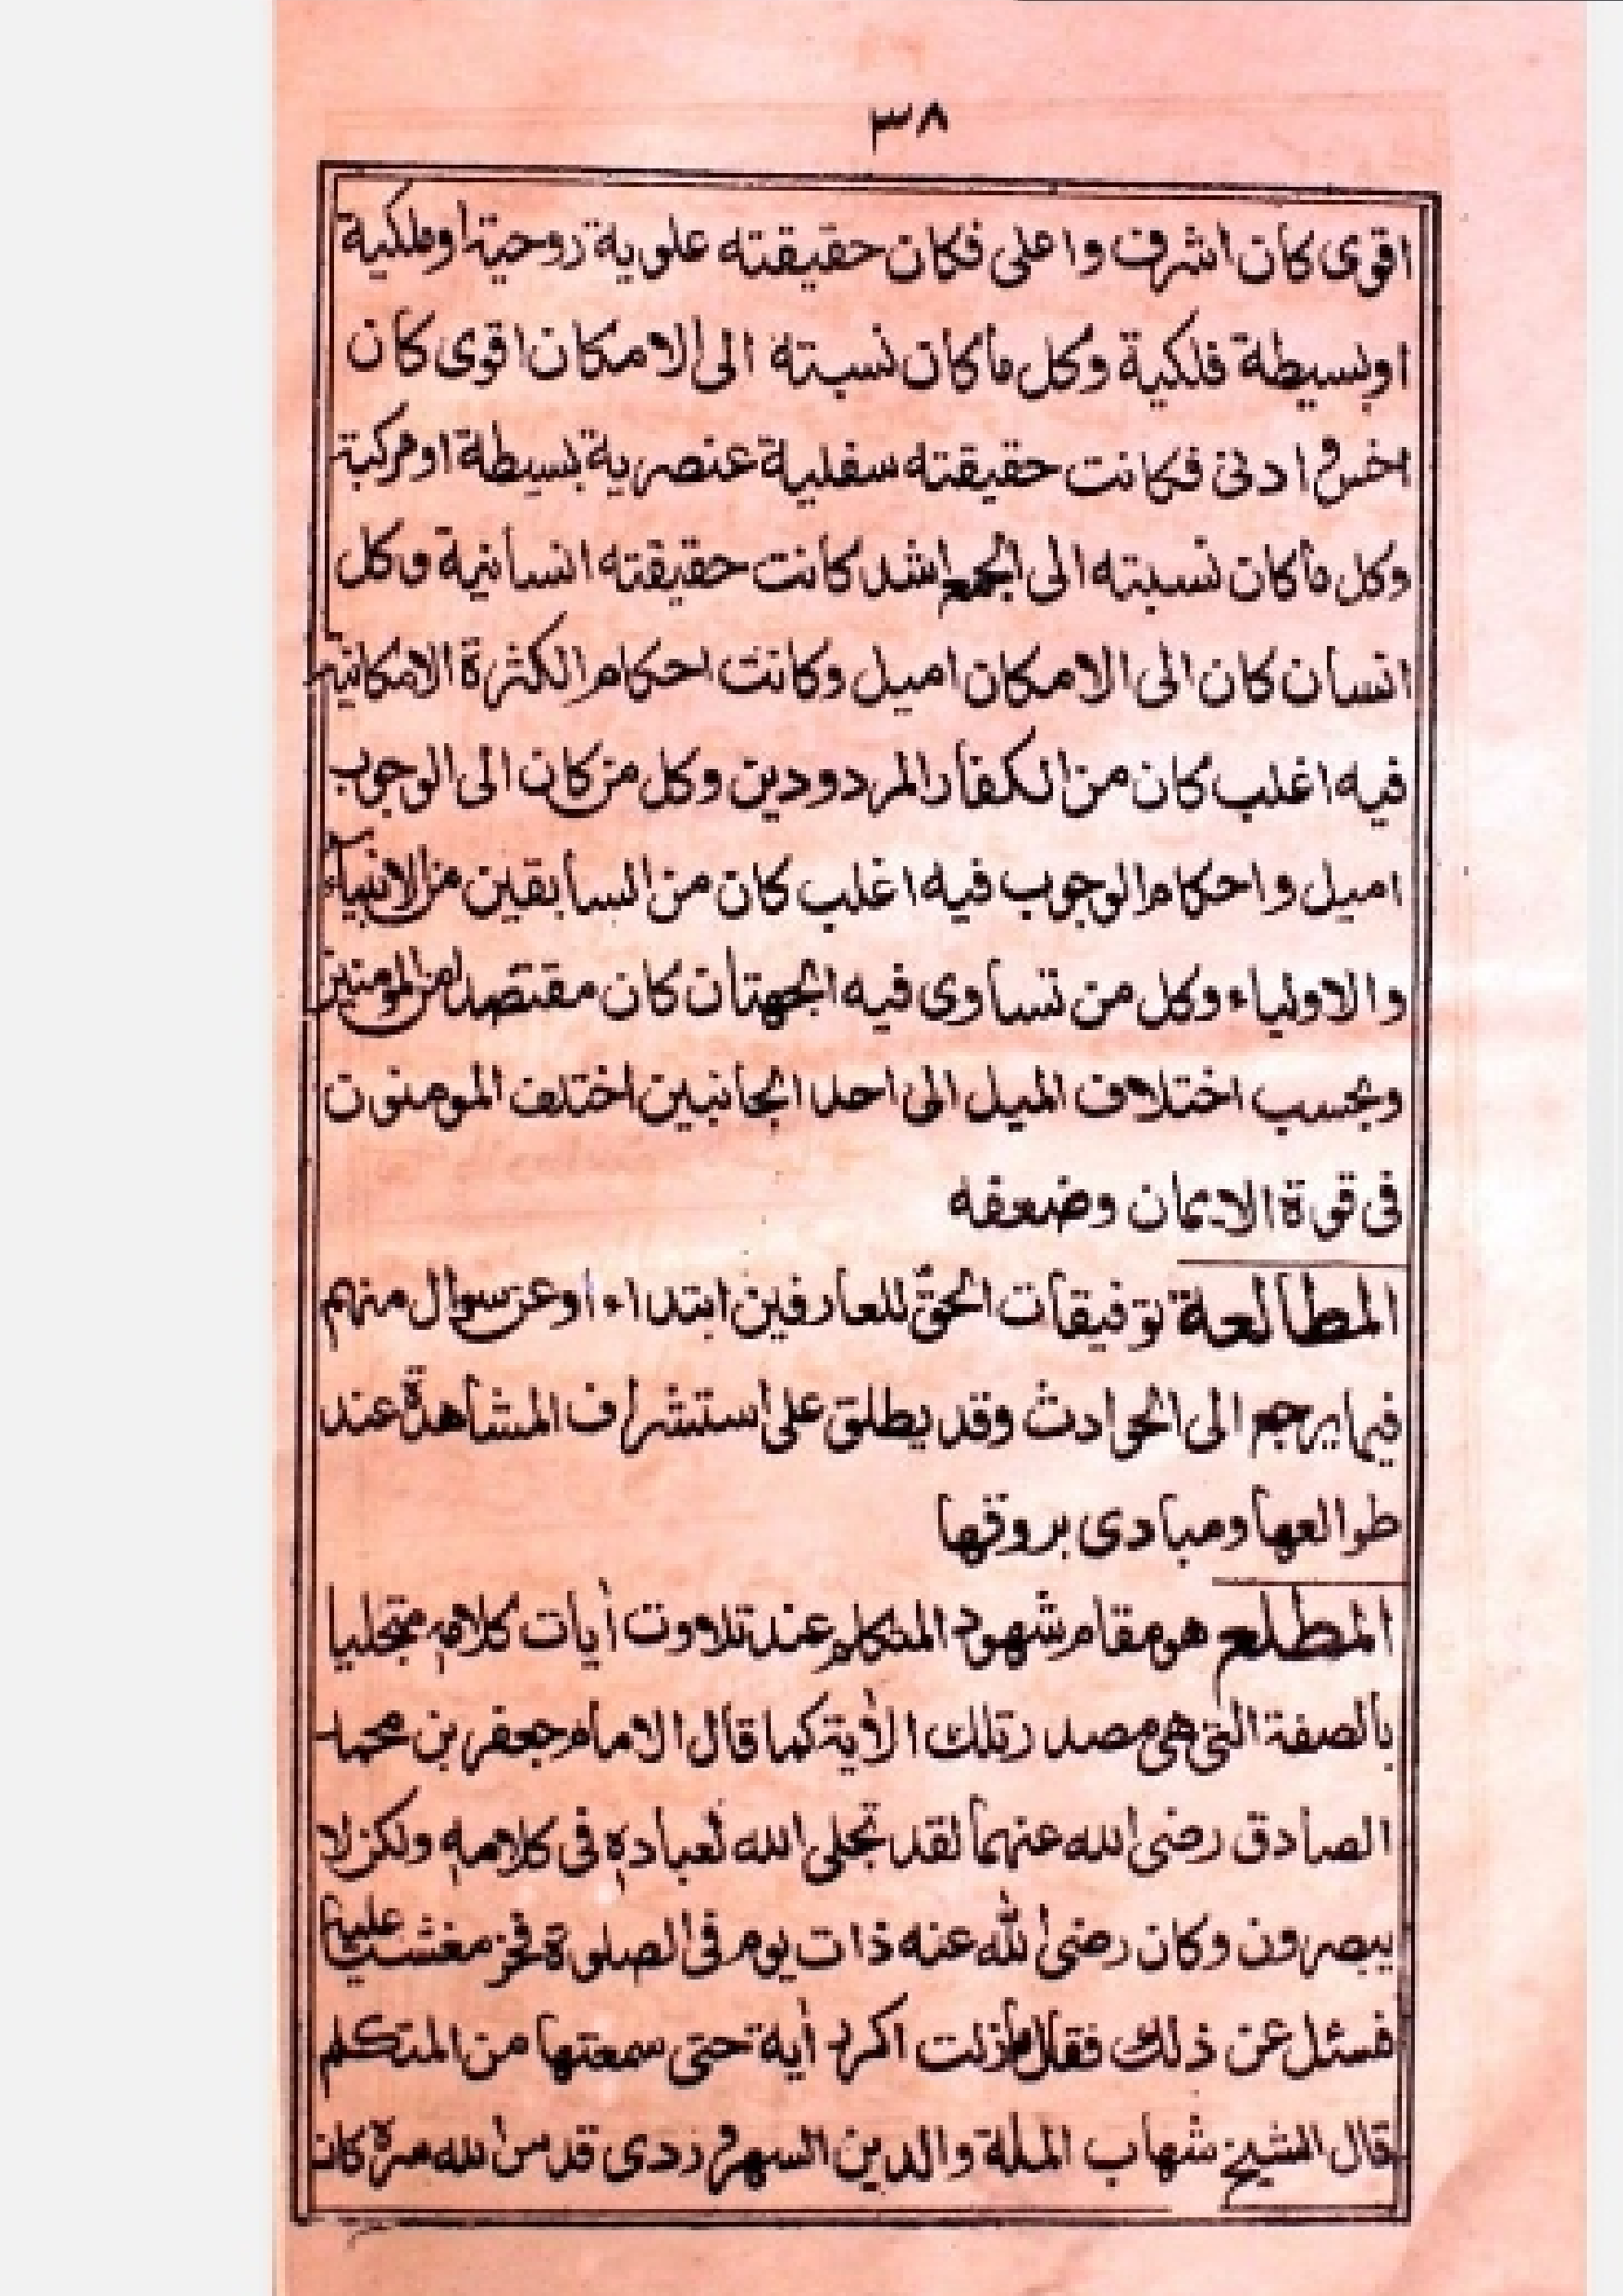 ٣٨
اقوى كان اشرف واعلى فكان حقيقته علوية روحية اوملكية
اوبسيطة فلكية وكل ماكان نسبته الى الامكان اقوى كان
اخس وادنى فكانت حقيقته سفلية عنصرية بسيطة اومركبة
وكل ماكان نسبته الى الجمع اشد كانت حقيقته انسانية وكل
انسان كان الى الامكان اميل وكانت احكام الكثرة الامكانية
فيه اغلب كان من الكفار المردودين وكل من كان الى الوجوب
اميل واحكام الوجوب فيه اغلب كان من السابقين من الانبياء
والاولياء وكل من تساوى فيه الجهتان كان مقتصدا من المومنين
وبحسب اختلاف الميل الى احد الجانبين اختلف المومنون
فى قوة الايمان وضعفه
المطالعة توفيقات الحق للعارفين ابتداء اوعن سوال منهم
فيما يرجع الى الحوادث وقد يطلق على استشراف المشاهدة عند
طوالعها ومبادى بروقها
المطلع هو مقام شهود المتكلم عند تلاوت أيات كلامه متجليا
بالصفة التى هى مصدر تلك الأية كما قال الامام جعفر بن محمد
الصادق رضى الله عنهما لقد تجلى الله لعباده فى كلامه ولكن لا
يبصرون وكان رضى الله عنه ذات يوم فى الصلوة فخر مغشيا عليه
فسئل عن ذلك فقال مازلت اكرر أية حتى سمعتها من المتكلم
قال الشيخ شهاب الملة والدين السهروردى قدس الله سره كان